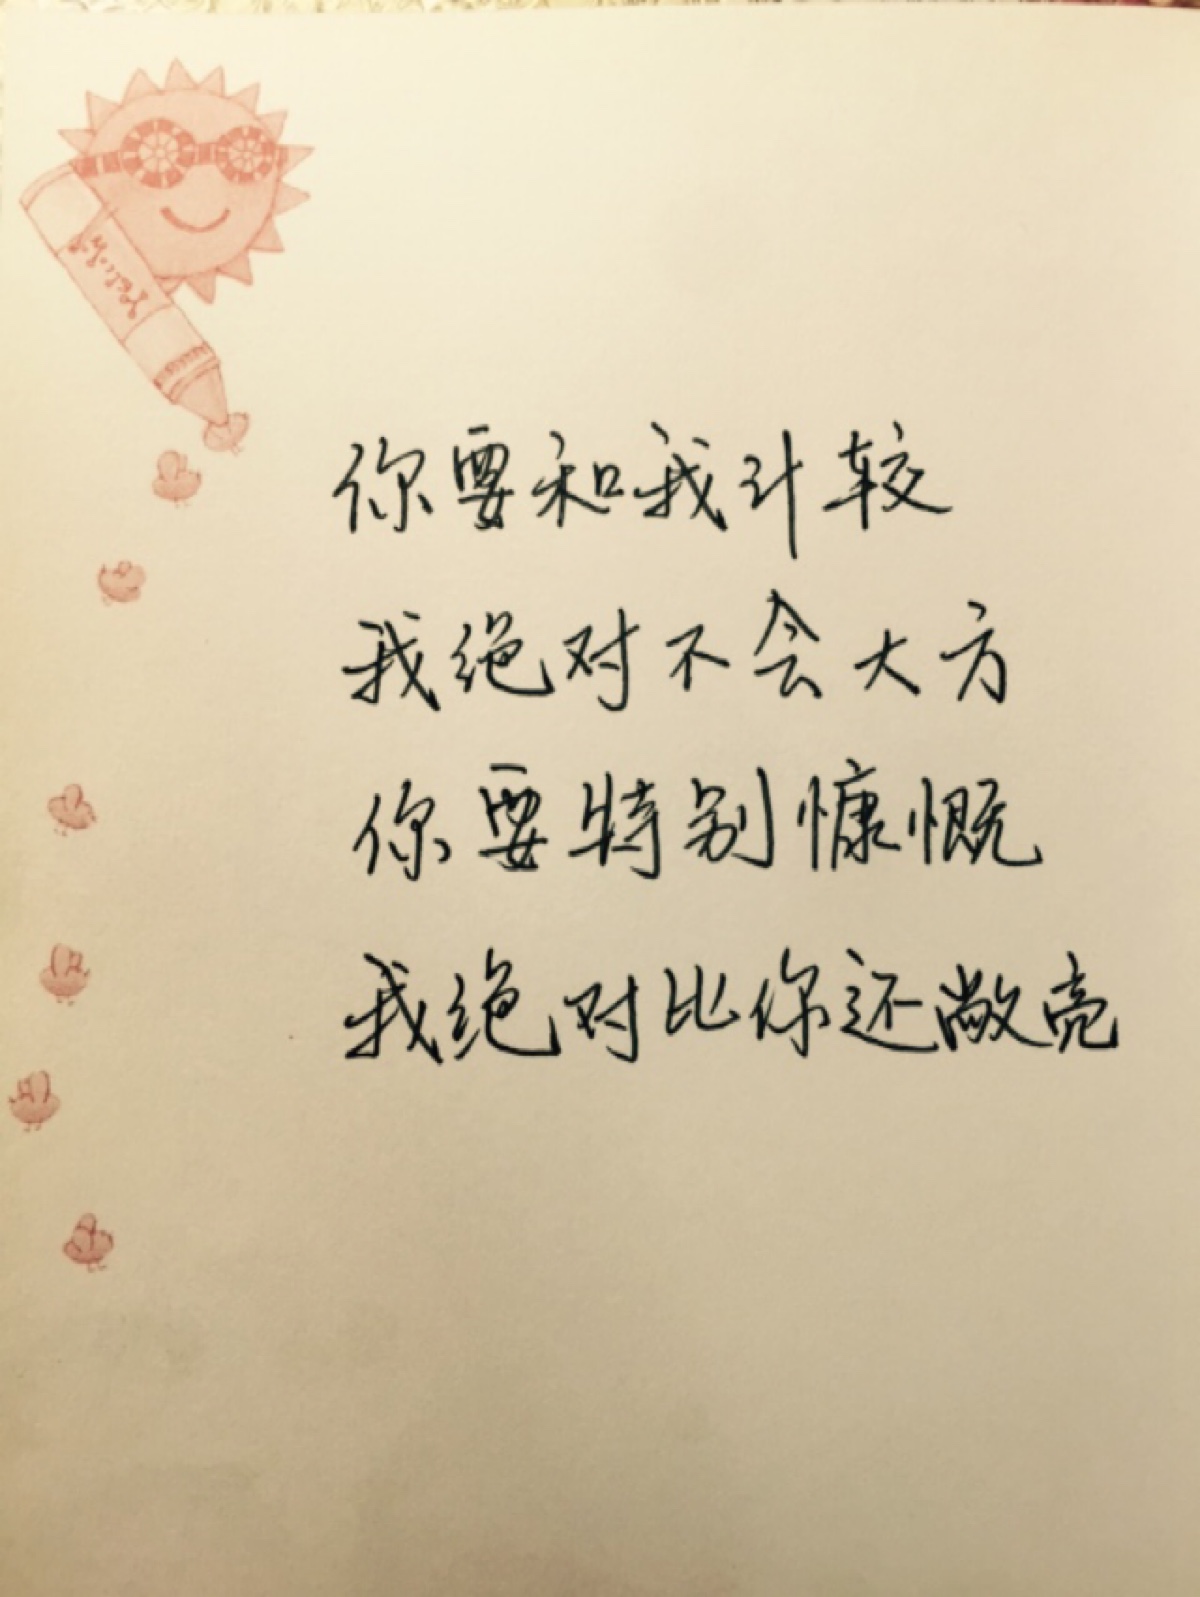 你要和我计较
我绝对不会大方
你要特别慷慨
我绝对比你还敞亮